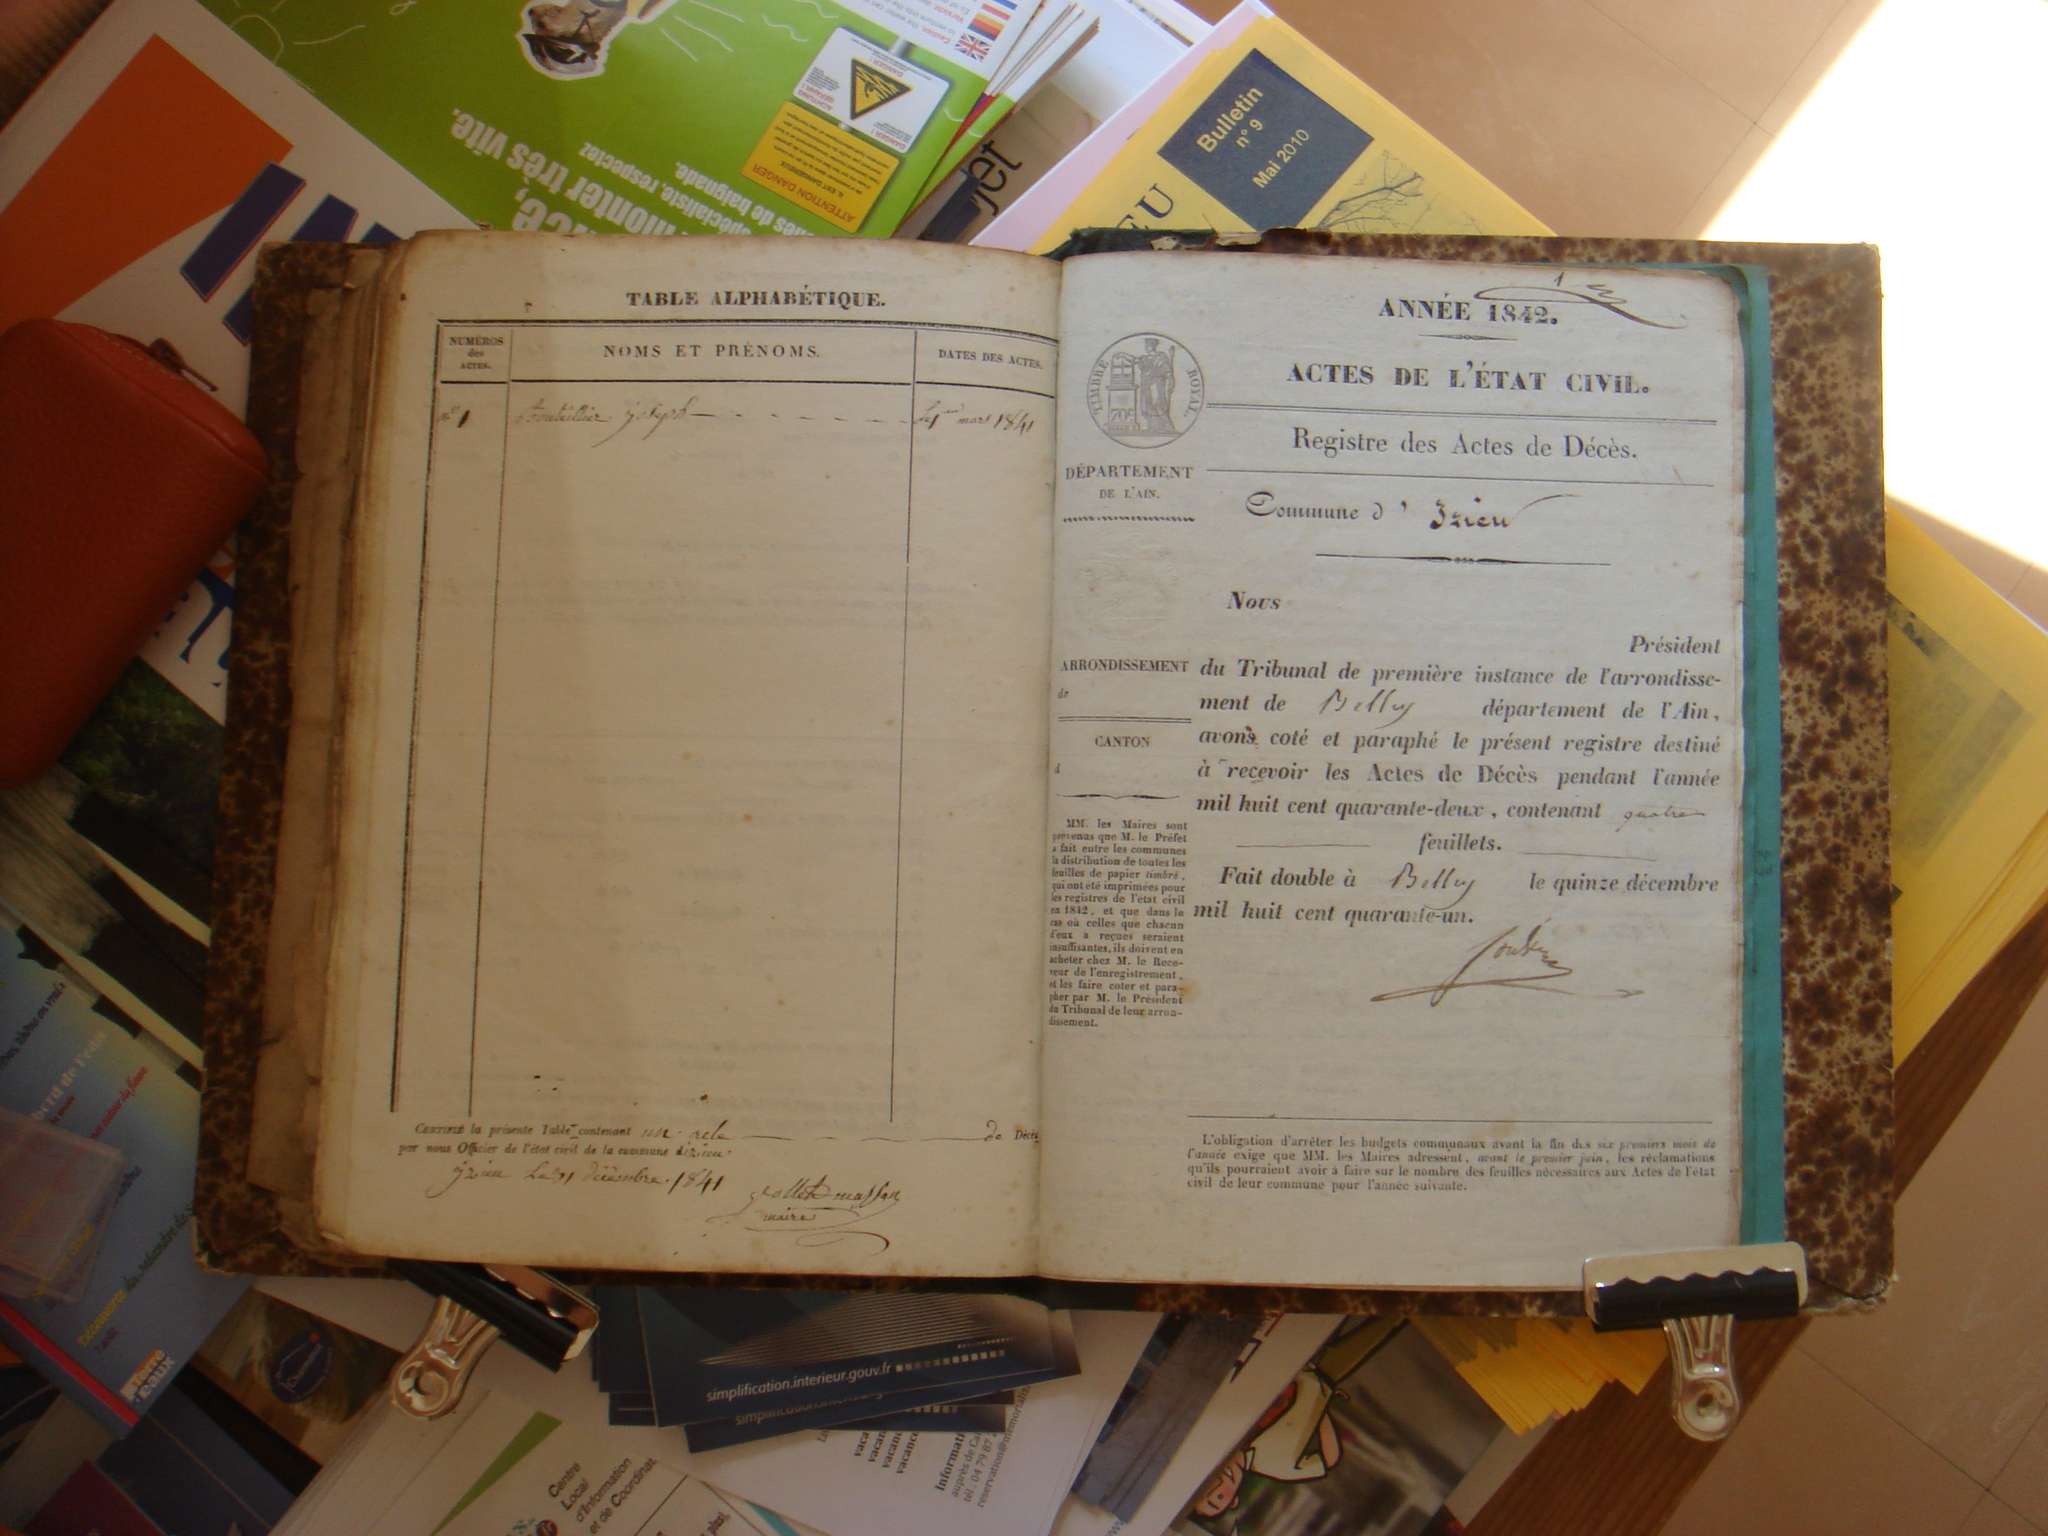 TABLE ALPHABÉTIQUE.
NUMÉROS
des
ACTES.
NOMS ET PRÉNOMS.
DATES DES ACTES.
nº 1
joseph
le 1er mars 1841
CERTIFIÉ la présente Table contenant un acte de Décès
par nous Officier de l'état civil de la commune d'izieu.
izieu Le 31 décembre 1841
maire
1
ANNÉE 1842.
TIMBRE ROYAL.
ACTES DE L'ÉTAT CIVIL.
Registre des Actes de Décès.
DÉPARTEMENT
DE L'AIN.
Commune d' Izieu
Nous
Président
ARRONDISSEMENT
de
CANTON
d
du Tribunal de première instance de l'arrondisse-
ment de Belley département de l'Ain,
avons coté et paraphé le présent registre destiné
à recevoir les Actes de Décès pendant l'année
mil huit cent quarante-deux, contenant quatre
feuillets.
Fait double à Belley le quinze décembre
mil huit cent quarante-un.
MM. les Maires sont
prévenus que M. le Préfet
a fait entre les communes
la distribution de toutes les
feuilles de papier timbré,
qui ont été imprimées pour
les registres de l'état civil
en 1842, et que dans le
cas où celles que chacun
d'eux a reçues seraient
insuffisantes, ils doivent en
acheter chez M. le Rece-
veur de l'enregistrement,
et les faire coter et para-
pher par M. le Président
du Tribunal de leur arron-
dissement.
L'obligation d'arrêter les budgets communaux avant la fin des six premiers mois de
l'année exige que MM. les Maires adressent, avant le premier juin, les réclamations
qu'ils pourraient avoir à faire sur le nombre des feuilles nécessaires aux Actes de l'état
civil de leur commune pour l'année suivante.
Bulletin
n° 9
Mai 2010
EU
jet
monter très vite.
spécialiste, respectez
de baignade.
ATTENTION DANGER
DANGER
simplification.interieur.gouv.fr
Terre
d'eaux
Centre
Local
d'Information
et de Coordinat
Informati
auprès de Ca
tél. 04 79 87